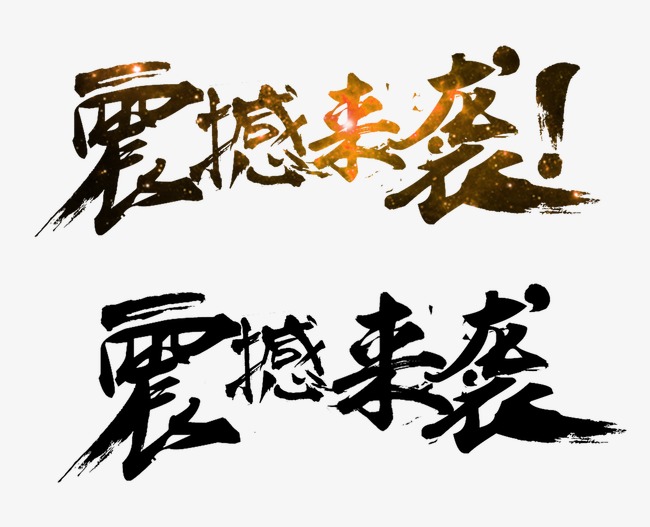 震撼来袭!
震撼来袭